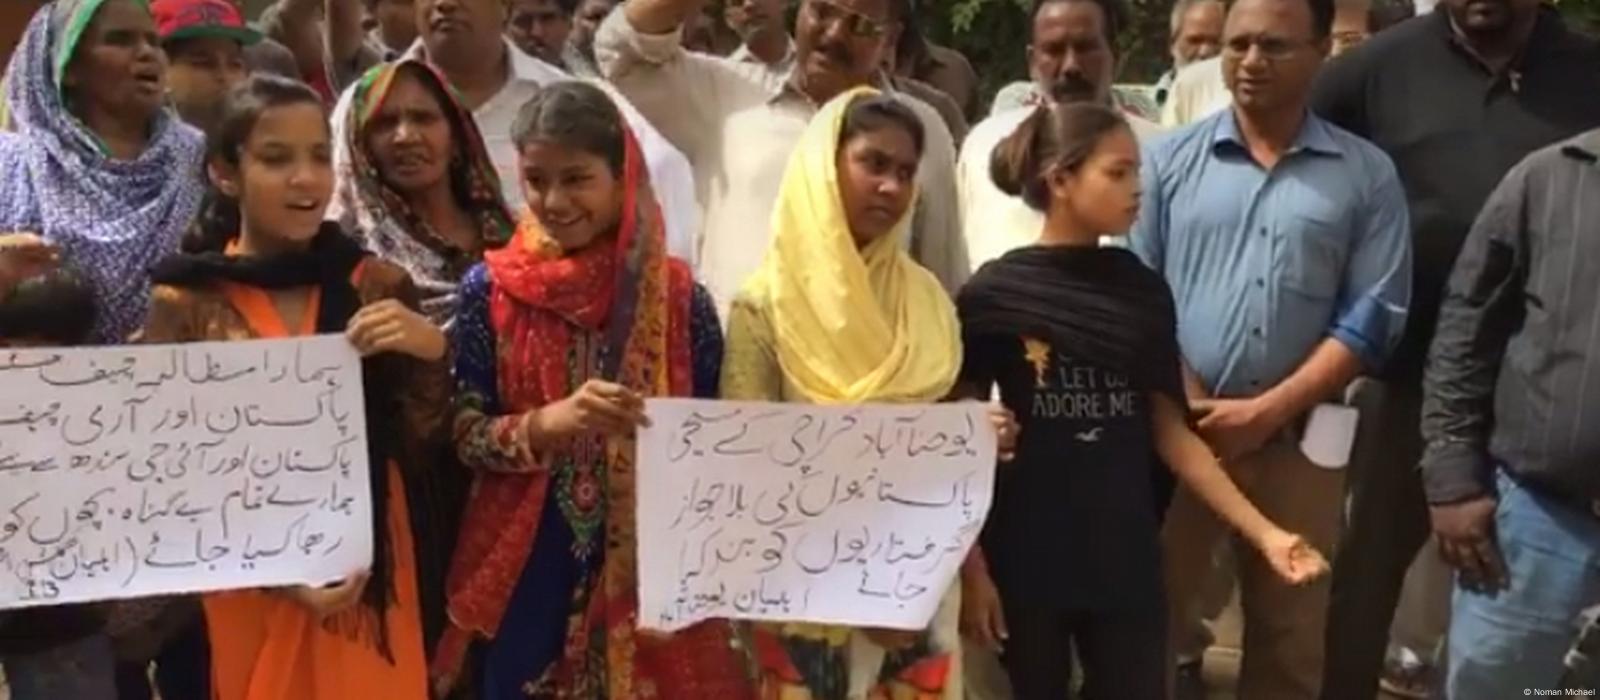 ہمارا مطالبہ چیف
پاکستان اور آرمی چیف
پاکستان اور آئی جی سندھ سے ہے
ہمارے تمام بے گناہ بچوں کو
رہا کیا جائے (اہلیان
یوحنا آباد کراچی کے مسیحی
پاکستانیوں کی بلا جواز
گرفتاریوں کو بند کیا
جائے اہلیان یوحنا آباد
LET US
ADORE ME
© Noman Michael